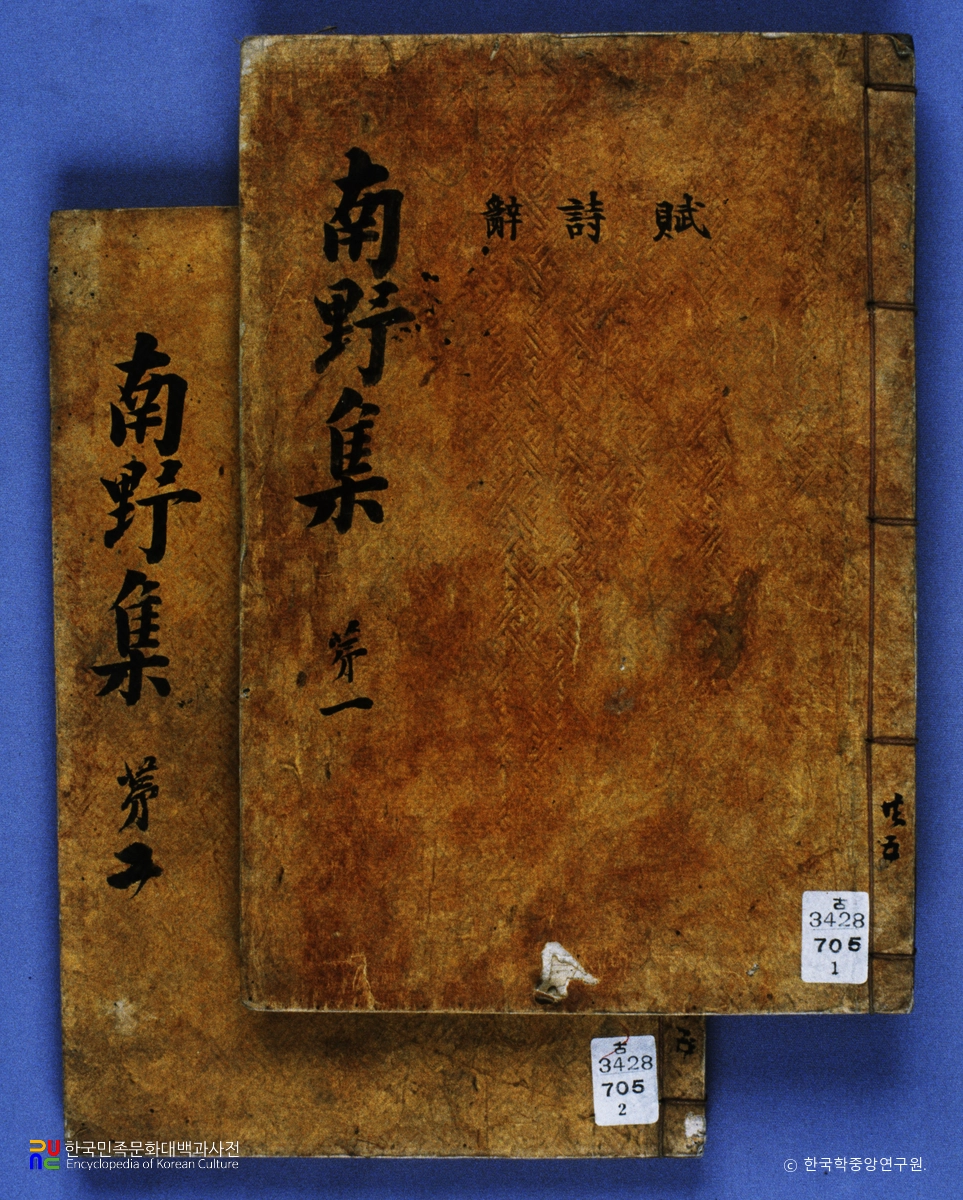 賦 詩 辭
南野集 第一
共五
古
3428
705
1
南野集 第二
五
古
3428
705
2
한국민족문화대백과사전
Encyclopedia of Korean Culture
ⓒ 한국학중앙연구원.